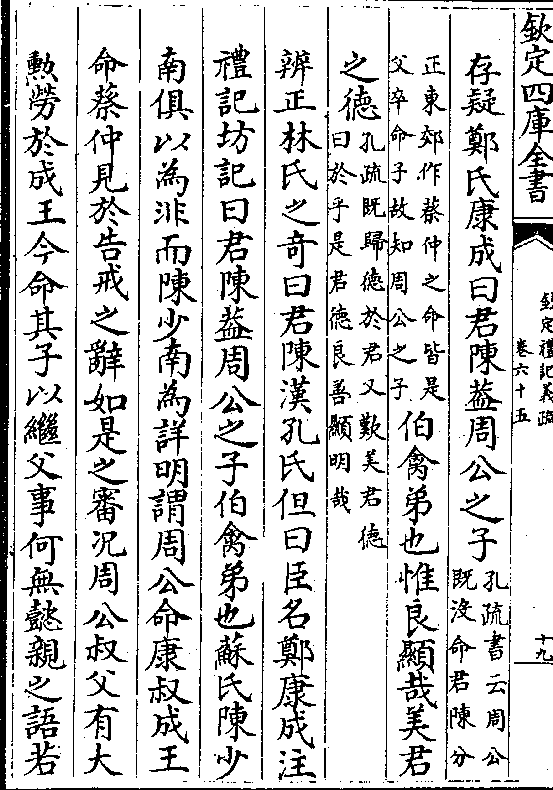 欽定四庫全書
欽定禮記義疏
卷六十五
十九
存疑鄭氏康成曰君陳葢周公之子孔疏書云周公既沒命君陳分
正東郊作蔡仲之命皆是父卒命子故知周公之子伯禽弟也惟良顯哉美君
之德孔疏既歸德於君又歎美君德曰於乎是君德良善顯明哉
辨正林氏之奇曰君陳漢孔氏但曰臣名鄭康成注
禮記坊記曰君陳葢周公之子伯禽弟也蘇氏陳少
南俱以為非而陳少南為詳明謂周公命康叔成王
命蔡仲見於告戒之辭如是之審况周公叔父有大
勲勞於成王今命其子以繼父事何無懿親之語若